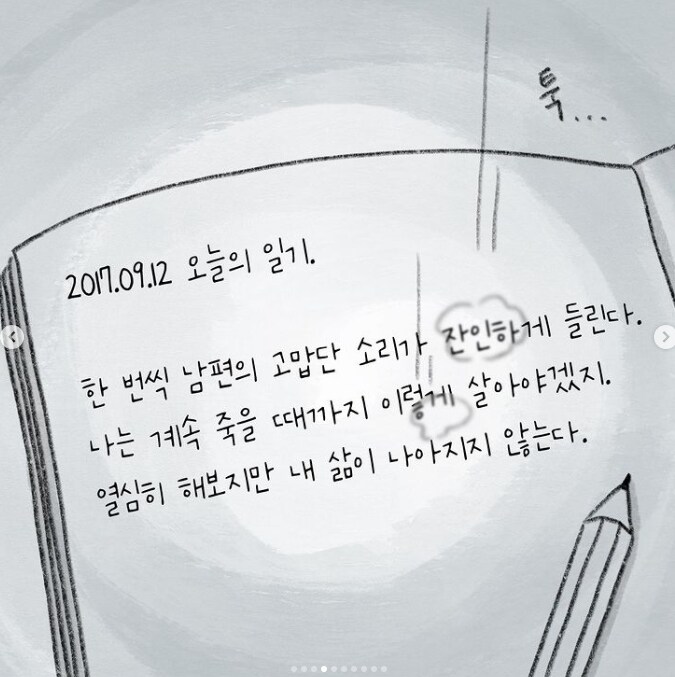 툭...
2017.09.12 오늘의 일기.
한 번씩 남편의 고맙단 소리가 잔인하게 들린다.
나는 계속 죽을 때까지 이렇게 살아야겠지.
열심히 해보지만 내 삶이 나아지지 않는다.